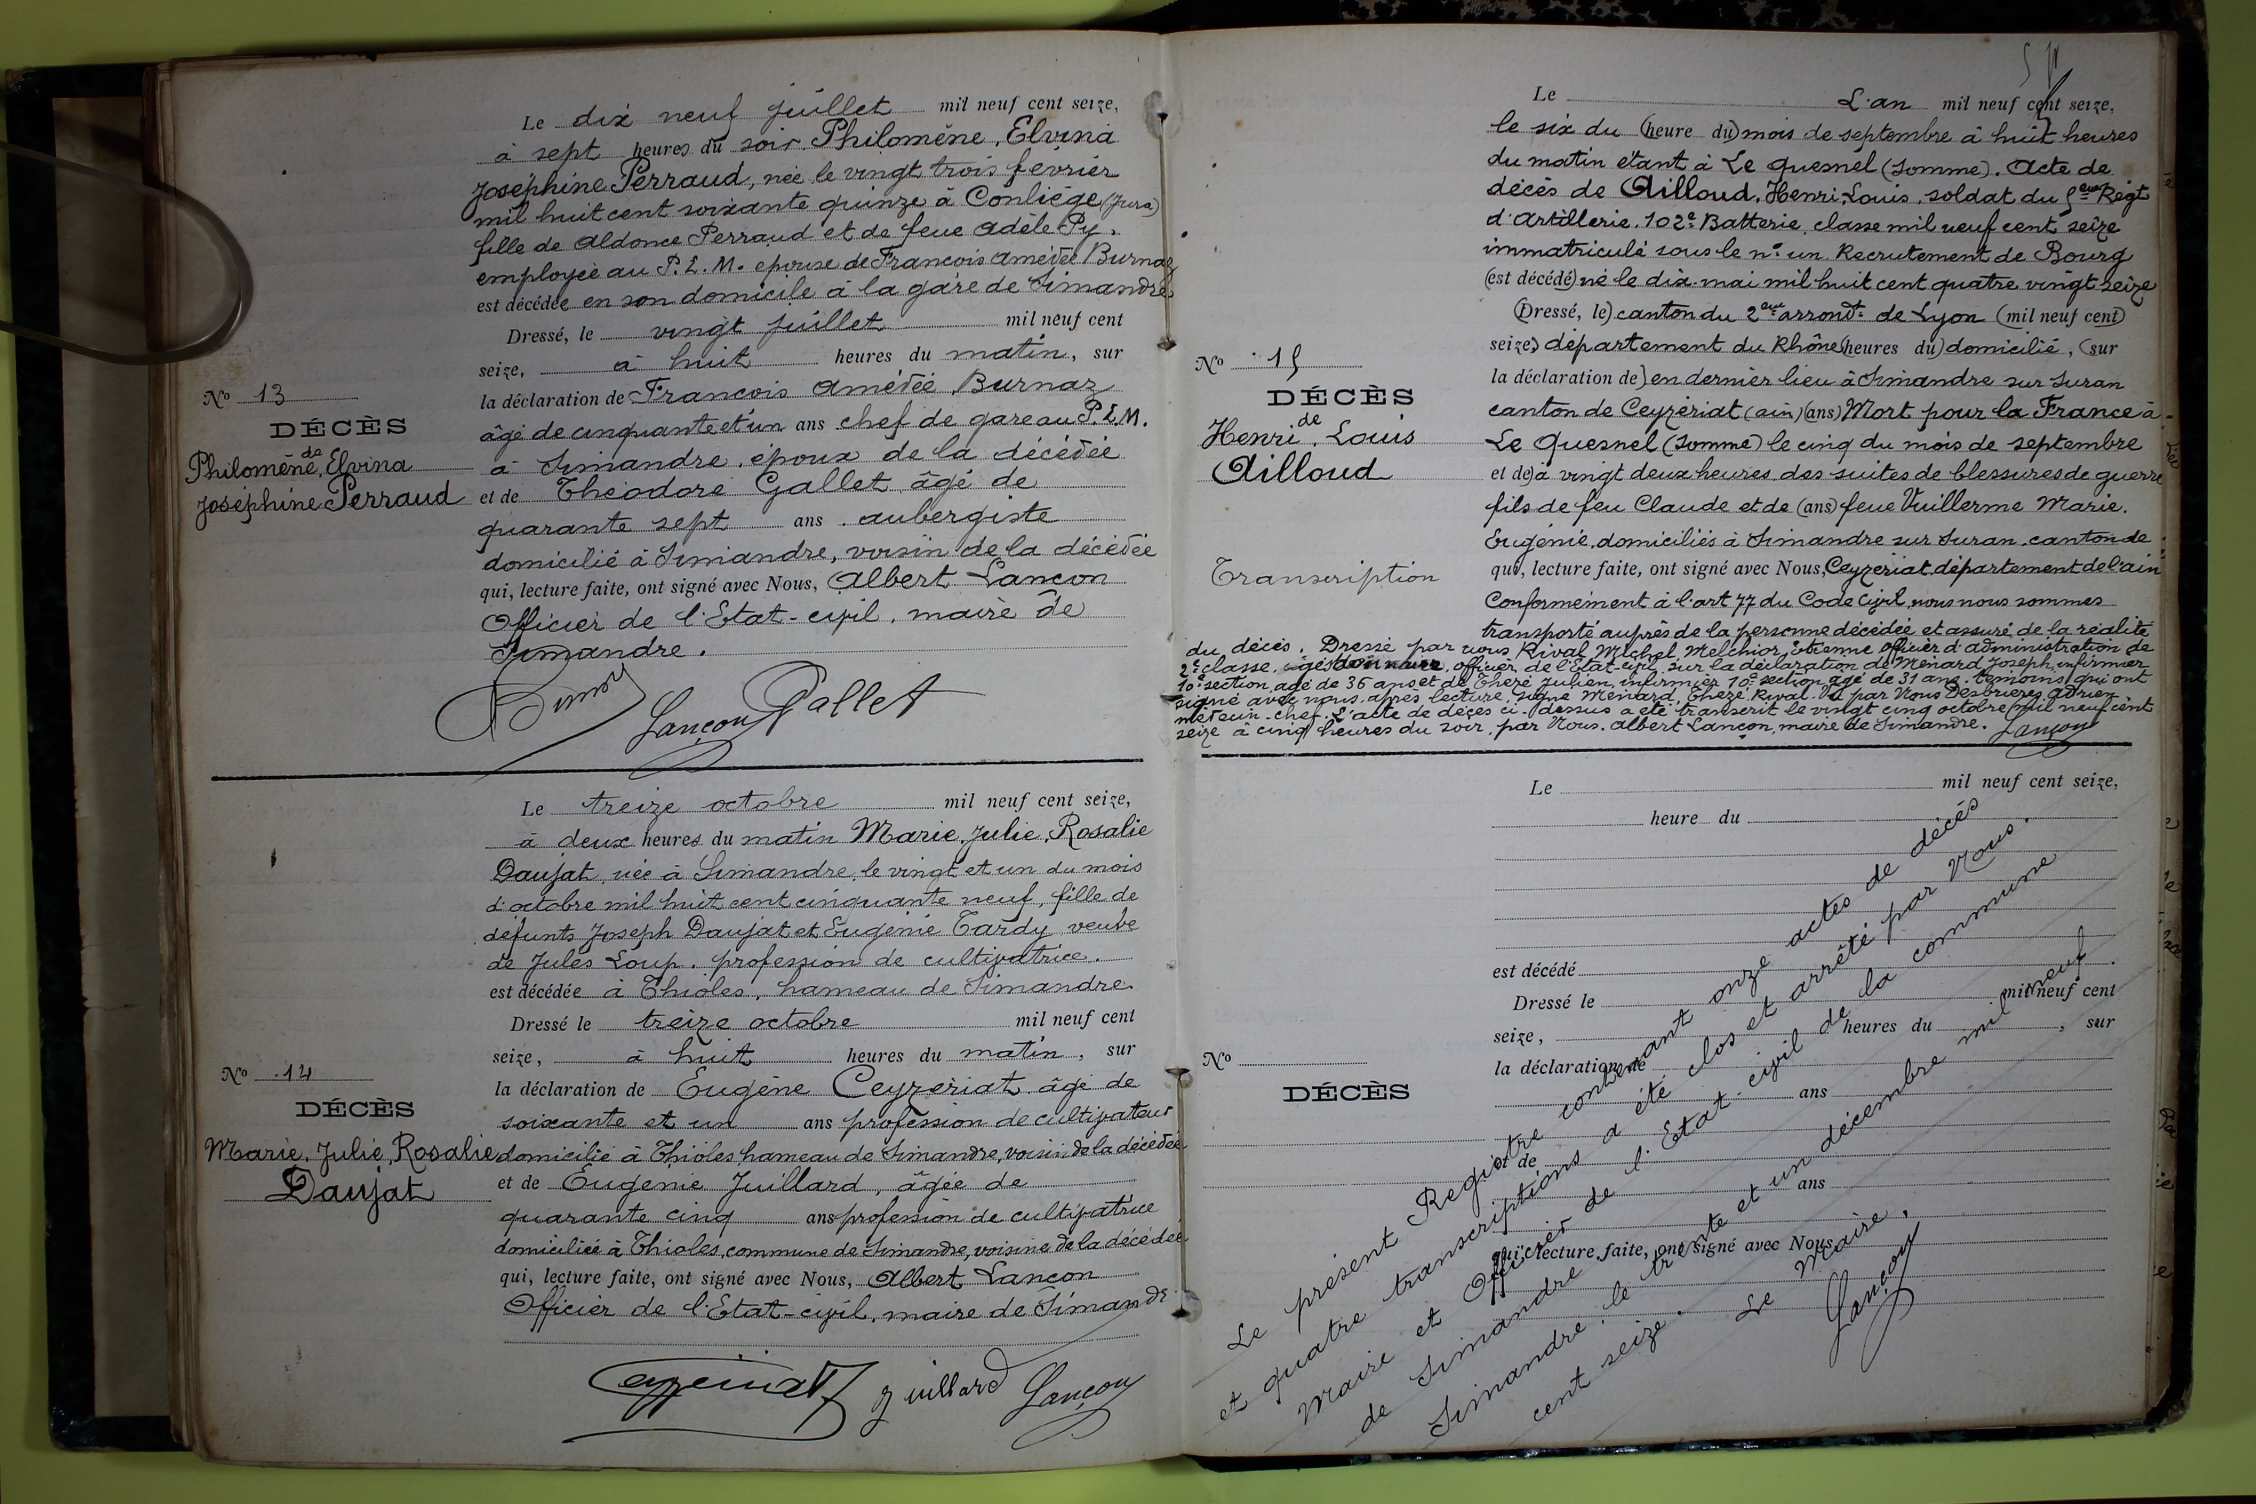 Le dix neuf juillet mil neuf cent seize,
à sept heures du soir Philomène, Elvina
Joséphine Perraud, née le vingt trois février
mil huit cent soixante quinze à Conliège (Jura)
fille de Aldonce Perraud et de feue Adèle Py.
employée au P.L.M. épouse de François Amédée Burnaz
est décédée en son domicile à la gare de Simandre
Dressé, le vingt juillet mil neuf cent
seize, à huit heures du matin, sur
la déclaration de François Amédée Burnaz
âgé de cinquante et un ans chef de gare au P.L.M.
à Simandre, époux de la décédée
et de Théodore Gallet âgé de
quarante sept ans aubergiste
domicilié à Simandre, voisin de la décédée
qui, lecture faite, ont signé avec Nous, Albert Lançon
Officier de l'Etat-civil, maire de
Simandre.
Lançon Gallet
No 13
DÉCÈS
de
Philomène, Elvina
Joséphine Perraud
Le treize octobre mil neuf cent seize,
à deux heures du matin Marie, Julie, Rosalie
Daujat, née à Simandre, le vingt et un du mois
d'octobre mil huit cent cinquante neuf, fille de
défunts Joseph Daujat et Eugénie Tardy veuve
de Jules Loup. profession de cultivatrice.
est décédée à Thioles, hameau de Simandre
Dressé le treize octobre mil neuf cent
seize, à huit heures du matin, sur
la déclaration de Eugène Ceyzériat âgé de
soixante et un ans profession de cultivateur
domicilié à Thioles, hameau de Simandre, voisin de la décédée
et de Eugénie Juillard, âgée de
quarante cinq ans profession de cultivatrice
domiciliée à Thioles, commune de Simandre, voisine de la décédée
qui, lecture faite, ont signé avec Nous, Albert Lançon
Officier de l'Etat-civil, maire de Simandre
Ceyzériat Juillard Lançon
No 14
DÉCÈS
Marie, Julie, Rosalie
Daujat
Le L'an mil neuf cent seize,
le six du (heure du) mois de septembre à huit heures
du matin étant à Le Quesnel (Somme). Acte de
décès de Ailloud, Henri, Louis, soldat du 5eme Régt
d'Artillerie, 102e Batterie, classe mil neuf cent seize
immatriculé sous le no un Recrutement de Bourg
(est décédé) né le dix mai mil huit cent quatre vingt seize
(Dressé, le) canton du 2eme arrondt de Lyon (mil neuf cent)
seize) département du Rhône (heures du) domicilié, (sur
la déclaration de) en dernier lieu à Simandre sur Suran
canton de Ceyzériat (ain) (ans) Mort pour la France à
Le Quesnel (Somme) le cinq du mois de septembre
et de) à vingt deux heures des suites de blessures de guerre
fils de feu Claude et de (ans) feue Vuillerme Marie.
Eugénie, domiciliés à Simandre sur Suran, canton de
qui, lecture faite, ont signé avec Nous, Ceyzériat département de l'ain
Conformément à l'art 77 du Code Civil, nous nous sommes
transporté auprès de la personne décédée et assuré de la réalité
du décès. Dressé par nous Rival Michel, Melchior, Etienne officier d'administration de
2e classe, gestionnaire, officier de l'Etat-civil, sur la déclaration de Ménard Joseph, infirmier
10e section, agé de 36 ans et de Théze Julien, infirmier 10e section, agé de 31 ans. témoins qui ont
signé avec nous après lecture. signé Ménard, Théze, Rival. Vu par Nous Desbrières, Adrien
chef. L'acte de décès ci-dessus a été transcrit le vingt cinq octobre mil neuf cent
seize à cinq heures du soir, par Nous, Albert Lançon, maire de Simandre. Lançon
No 15
DÉCÈS
de
Henri, Louis
Ailloud
Transcription
Le mil neuf cent seize,
heure du
est décédé
Dressé le mil neuf cent
seize, heures du , sur
la déclaration de
ans
et de
ans
qui, lecture faite, ont signé avec Nous,
No
DÉCÈS
Le présent Registre contenant onze actes de décés
et quatre transcriptions a été clos et arrêté par Nous.
Maire et Officier de l'Etat-civil de la commune
de Simandre
Simandre le trente et un décembre mil neuf
cent seize.
Le Maire,
Lançon